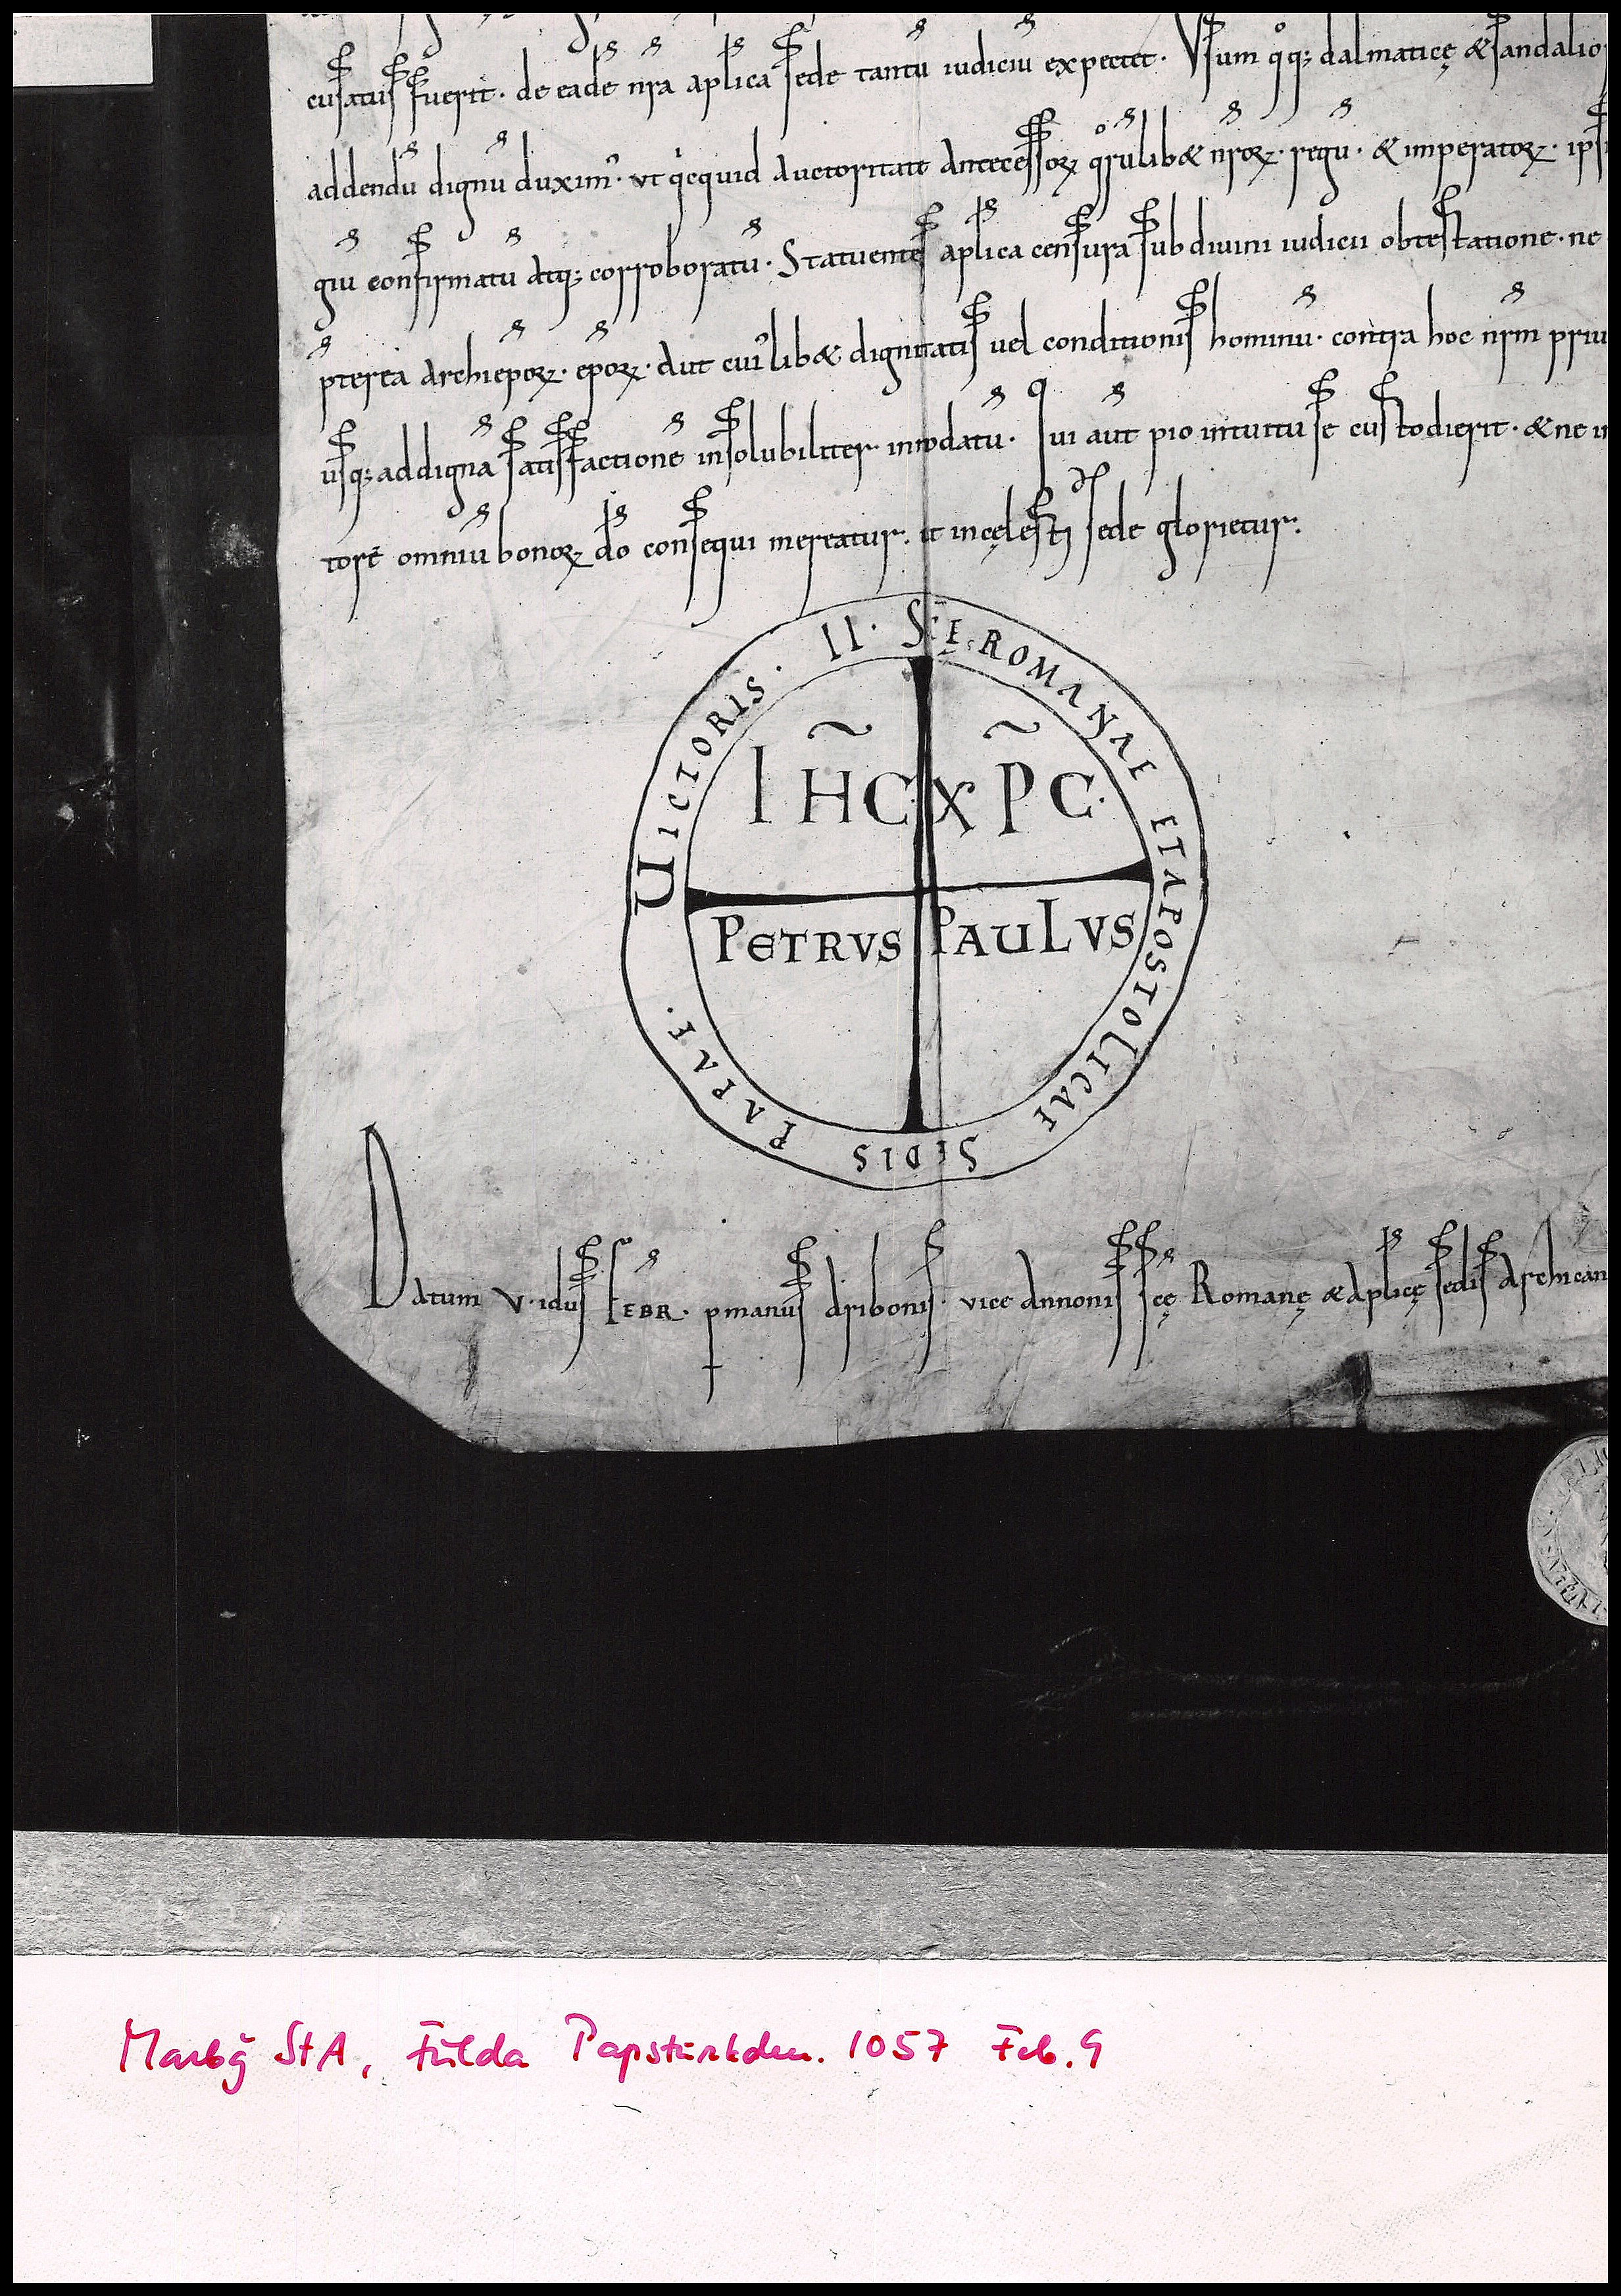 cusatus fuerit. de eade nra aplica sede tantu iudiciu expectet. Vsum qq; dalmaticę & sandalio
addendu dignu duxim. ut qcquid auctoritate antecessoꝝ qrulib& nroꝝ. regu. & imperatoꝝ. ips
giu confirmatu atq; corroboratu. Statuentes aplica censura sub divini iudicii obtestatione. ne
pterea archiepoꝝ. epoꝝ. aut cuilib& dignitatis vel conditionis hominu. contra hoc nrm priu
usq; ad digna satisfactione insolubiliter innodatu. Qui aut pio intuitu se custodierit. & ne
torē omniu bonoꝝ do consequi mereatur. et in cęlesti sede glorietur.
UICTORIS. II. SCE ROMANAE ET APOSTOLICAE SEDIS PAPAE.
IHC XPC
PETRVS PAULVS
Datum V. idus FEBR. p manus aribonis. vice annonis scę Romanę & aplicę sedis archican
Marbg StA, Fulda Papsturkden. 1057 Feb. 9